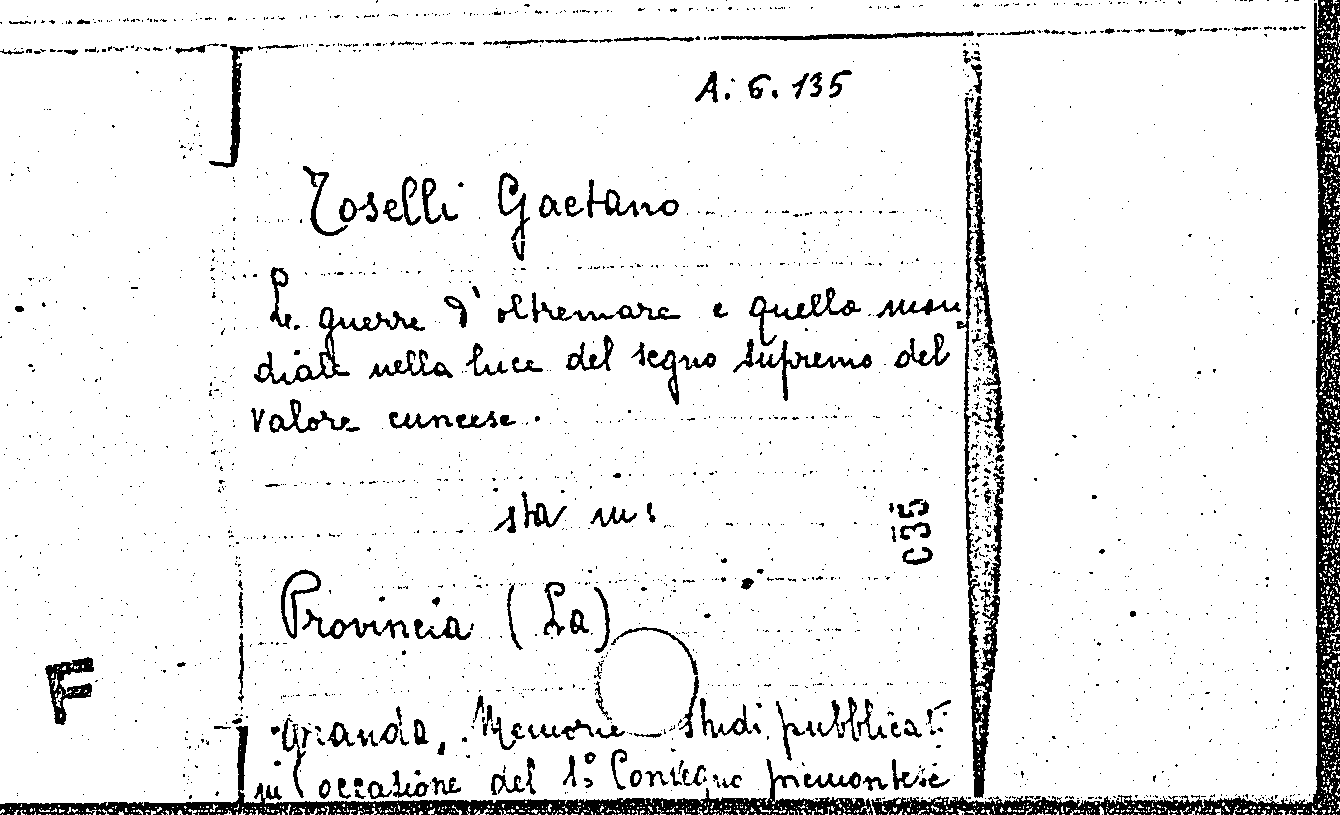 A. 6. 135
Toselli Gaetano
Le guerre d'oltremare e quella mon
diale nella luce del segno supremo del
valore cuneese.
sta in:
C35
Provincia (La)
F
Granda, Memorie studi pubblicati
in occasione del 1° Convegno piemontese